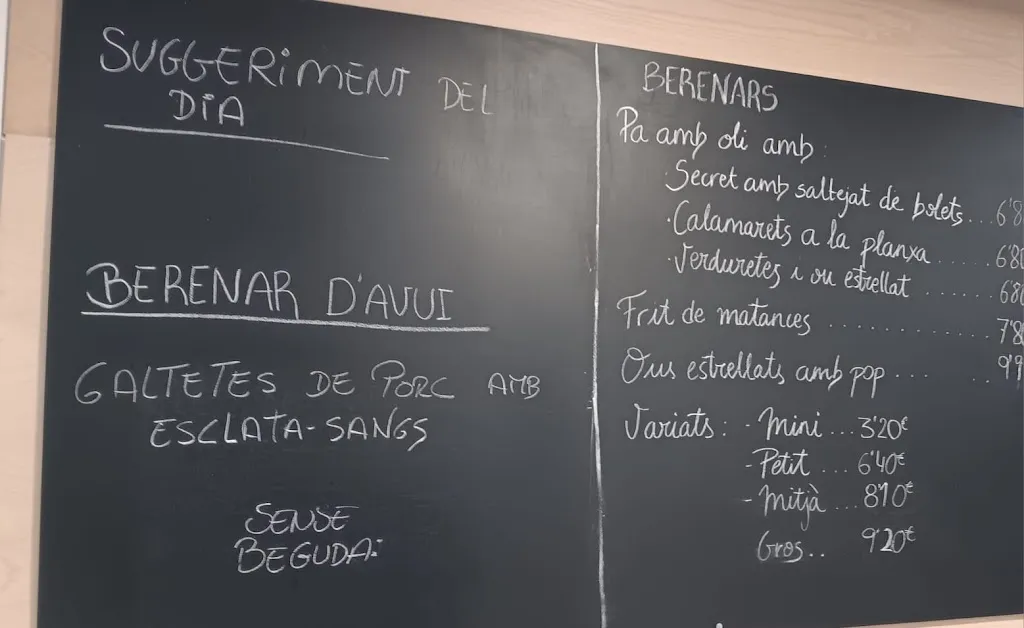 SUGGERIMENT DEL
DIA
BERENAR D'AVUI
GALTETES DE PORC AMB
ESCLATA-SANGS
SENSE
BEGUDA:
BERENARS
Pa amb oli amb:
·Secret amb saltejat de bolets...6'8
·Calamarets a la planxa ......6'80
·Verduretes i ou estrellat .......680
Frit de matances ...........7'8
Ous estrellats amb pop ... ..9'9
Variats: ·Mini ...3'20€
-Petit ...6'40€
-Mitjà ...8'10€
Gros.. 9'20€